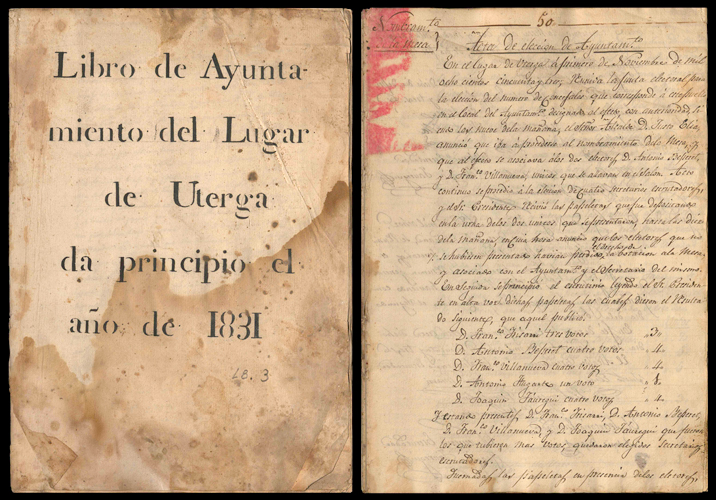 Libro de Ayunta-
miento del Lugar
de Uterga
da principio el
año de 1831
LB. 3
50
Acta de elección de Ayuntam.to
En el lugar de Uterga a primero de Noviembre de mil
ocho cientos cincuenta y tres, Reunida la Junta electoral para
la elección del numero de Concejales que corresponde
en el local del Ayuntam.to designado al efecto, con anterioridad, si-
endo las nueve dela mañana, el Señor Alcalde D.
anuncio que iba a procederse al nombramiento dela Mesa,
que al efecto se asociava alos dos electores D. Antonio
y D. Fran.co Villanueva, unicos que se alavan en el salon. Acto
continuo se prosedio a la elecion de cuatro Secretarios escrutadores,
y el Sr. Presidente Recivio las papeletas que fue depositando
en la urna delos dos unicos que se presentaron, hasta las diez
dela mañana, cuia hora anuncio que los electores que no
el derecho de
se hubiesen presentado havian perdido la botacion ala Mesa,
y asociado con el Ayuntam.to y el Secretario del mismo.
En seguida se principio el escrutinio leyendo el Sr. Presiden-
te en alta voz dichas papeletas, las cuales dieron el Resulta-
do siguiente, que aquel publicó.
D. Fran.co Irisarri tres votos " 3 "
D. Antonio cuatro votos " 4 "
D. Fran.co Villanueva cuatro votos " 4 "
D. Antonio un voto " 1 "
D. Joaquin Jauregui cuatro votos " 4 "
Y estando presentes, D. Fran.co Irisarri, D. Antonio
D. Fran.co Villanueva, y D. Joaquin Jauregui que fueron
los que tubieron mas votos, quedaron elegidos Secretarios
escrutadores.
Quemadas las papeletas en presencia delos electores,